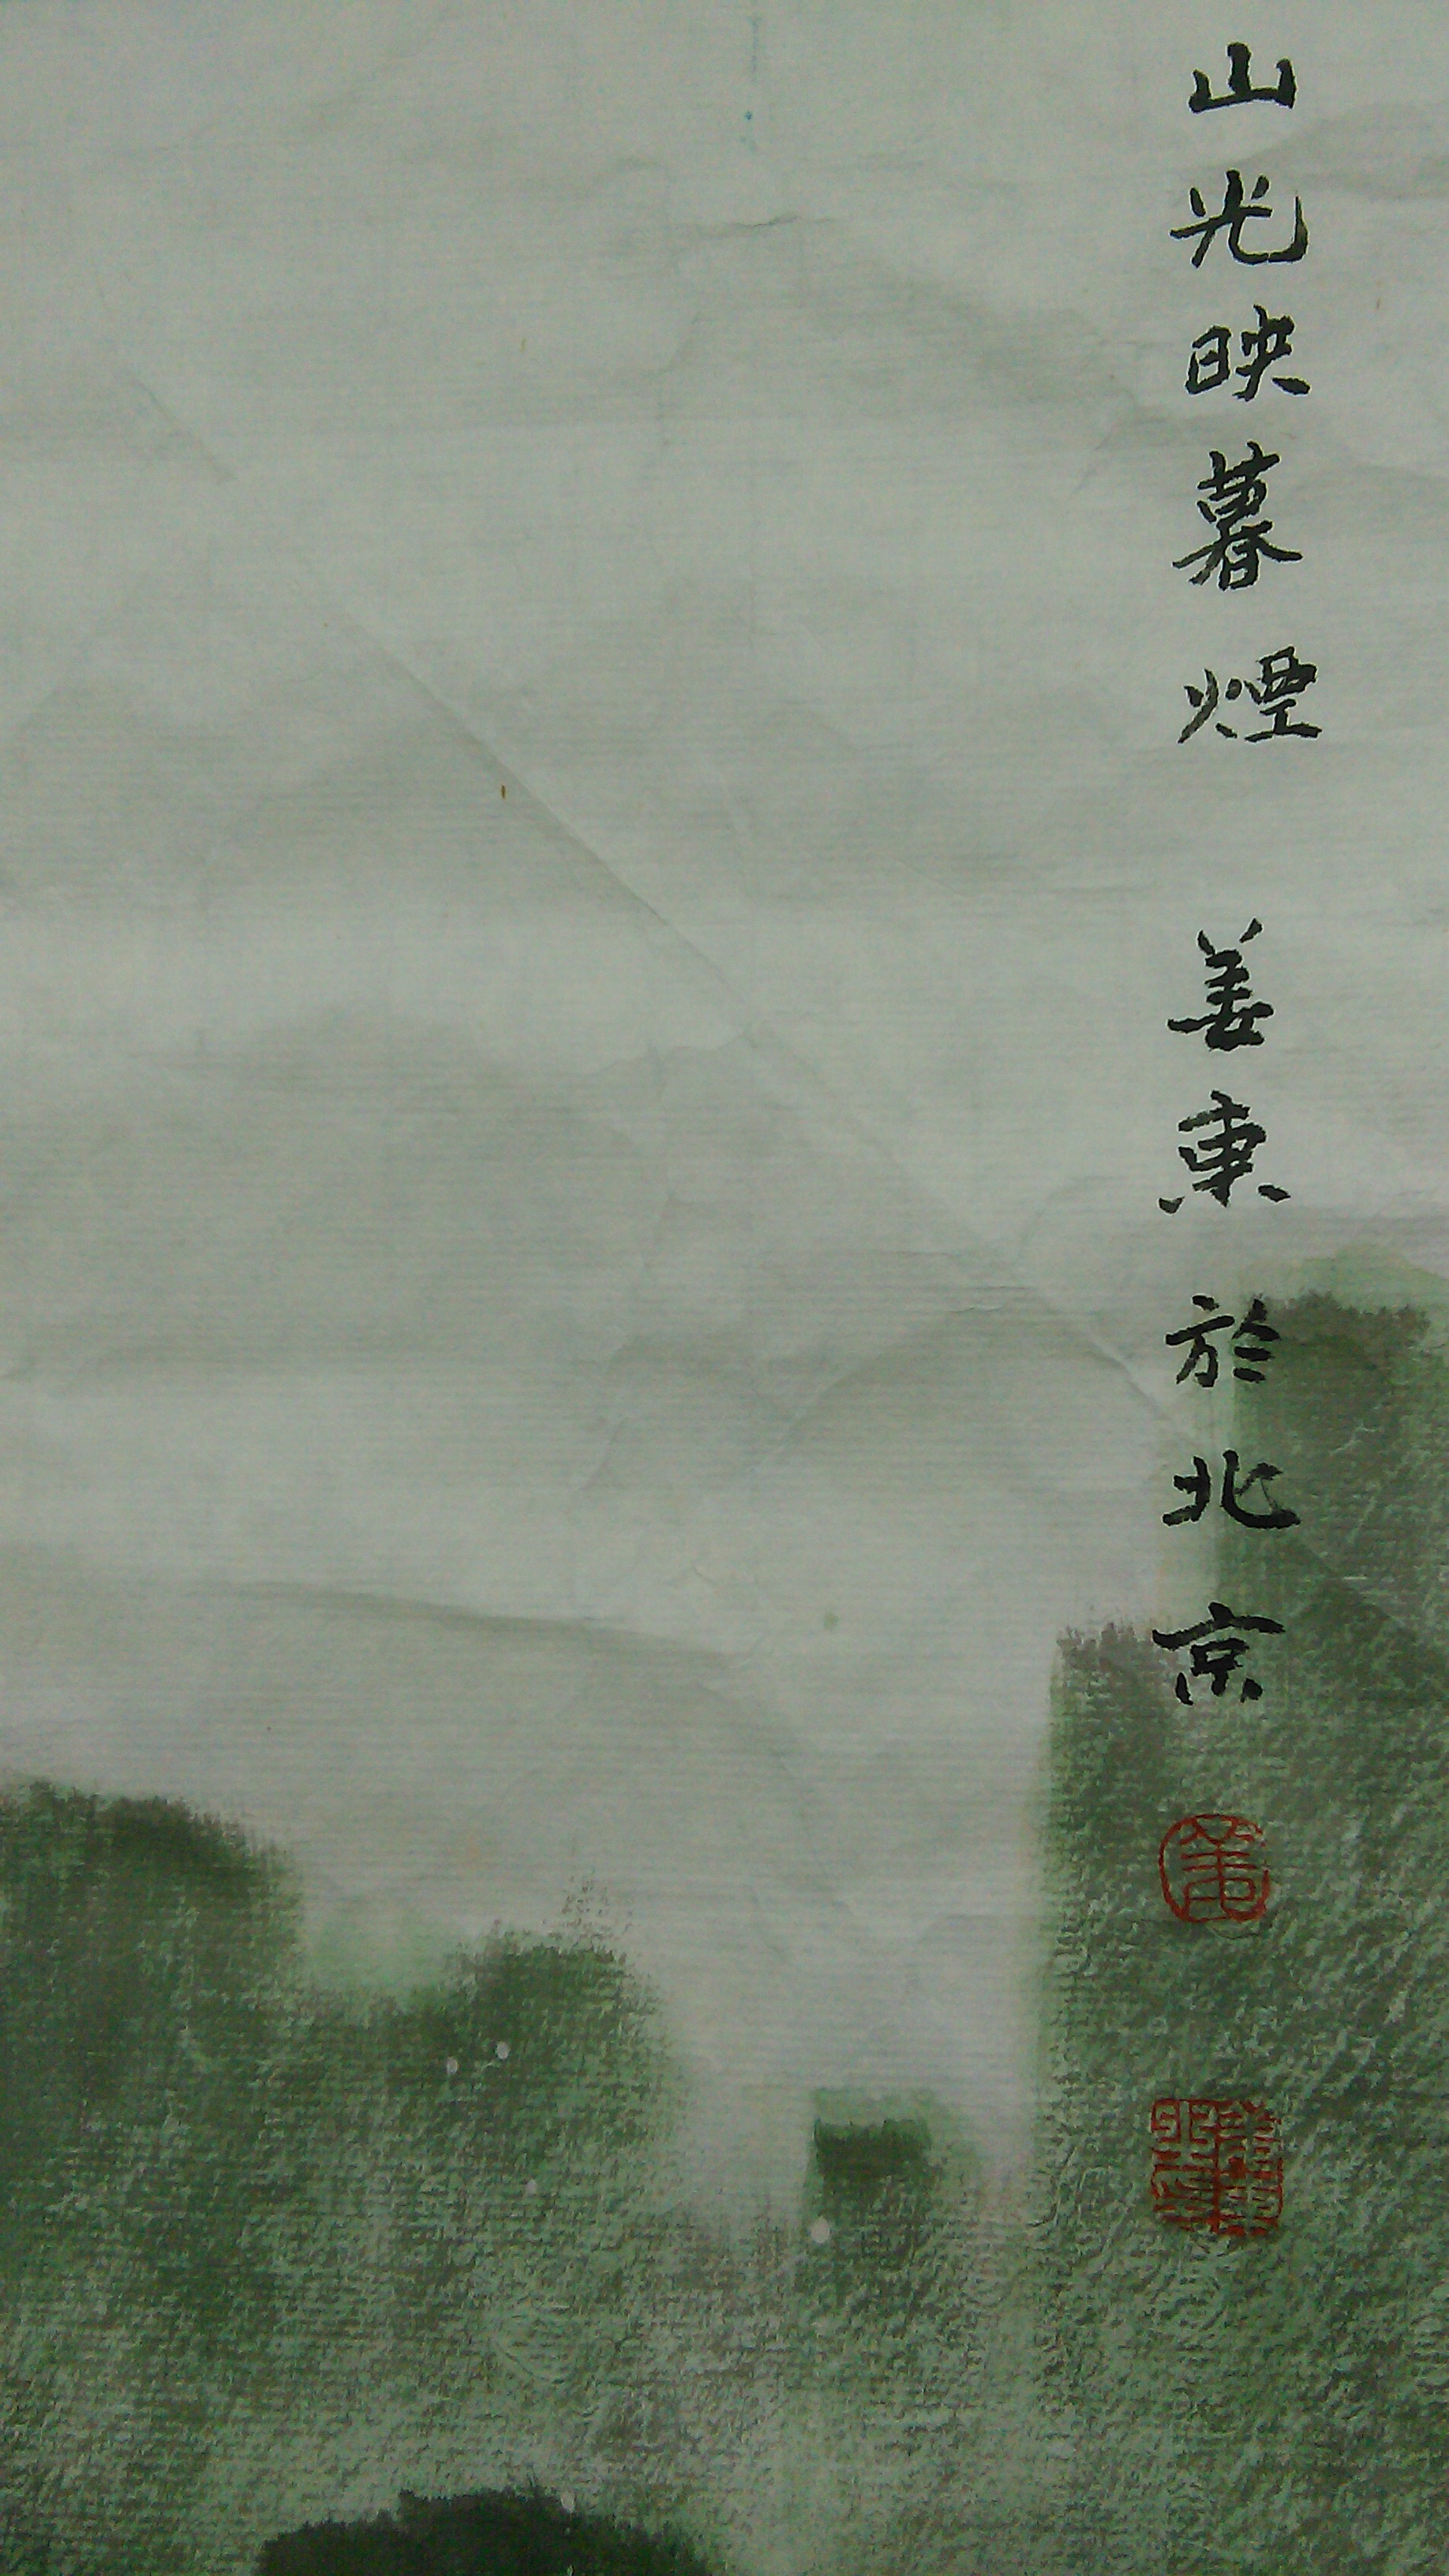 山光映暮煙 姜東於北京